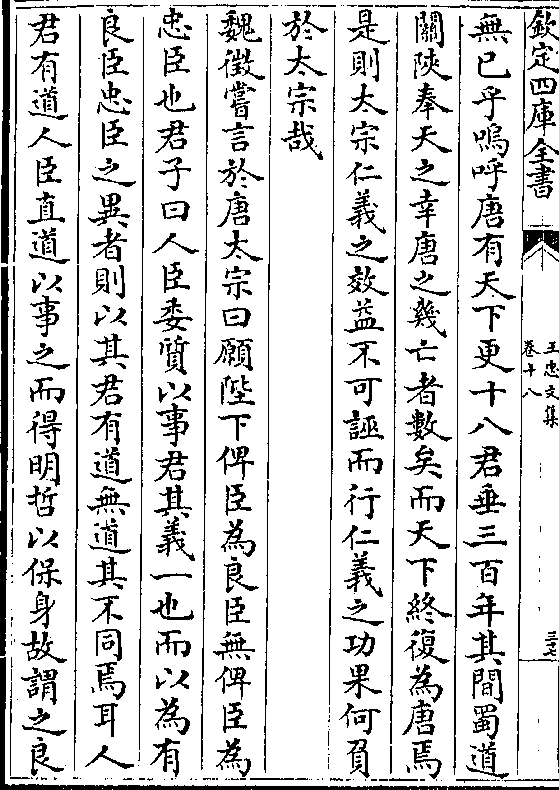 欽定四庫全書
王忠文集
卷十八
三七
無已乎嗚呼唐有天下更十八君垂三百年其間蜀道
關陝奉天之幸唐之幾亡者數矣而天下終復為唐焉
是則太宗仁義之效益不可誣而行仁義之功果何負
於太宗哉
魏徵嘗言於唐太宗曰願陛下俾臣為良臣無俾臣為
忠臣也君子曰人臣委質以事君其義一也而以為有
良臣忠臣之異者則以其君有道無道其不同焉耳人
君有道人臣直道以事之而得明哲以保身故謂之良